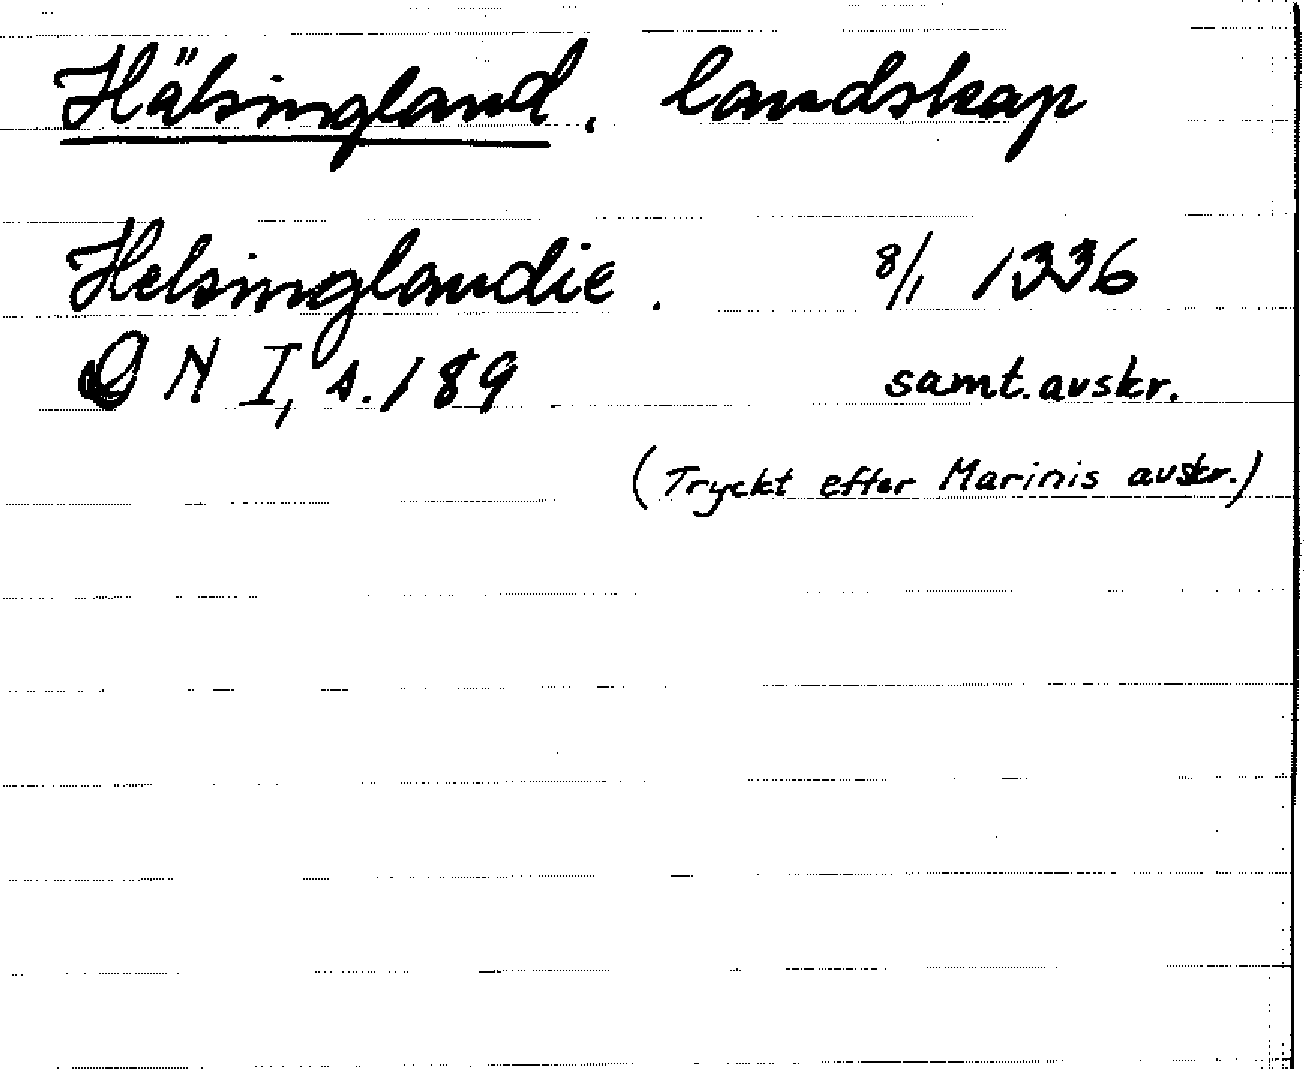 Hälsingland, landskap
Helsinglandie. 8/1 1336
DN I, s. 189 samt. avskr.
(Tryckt efter Marinis avskr.)